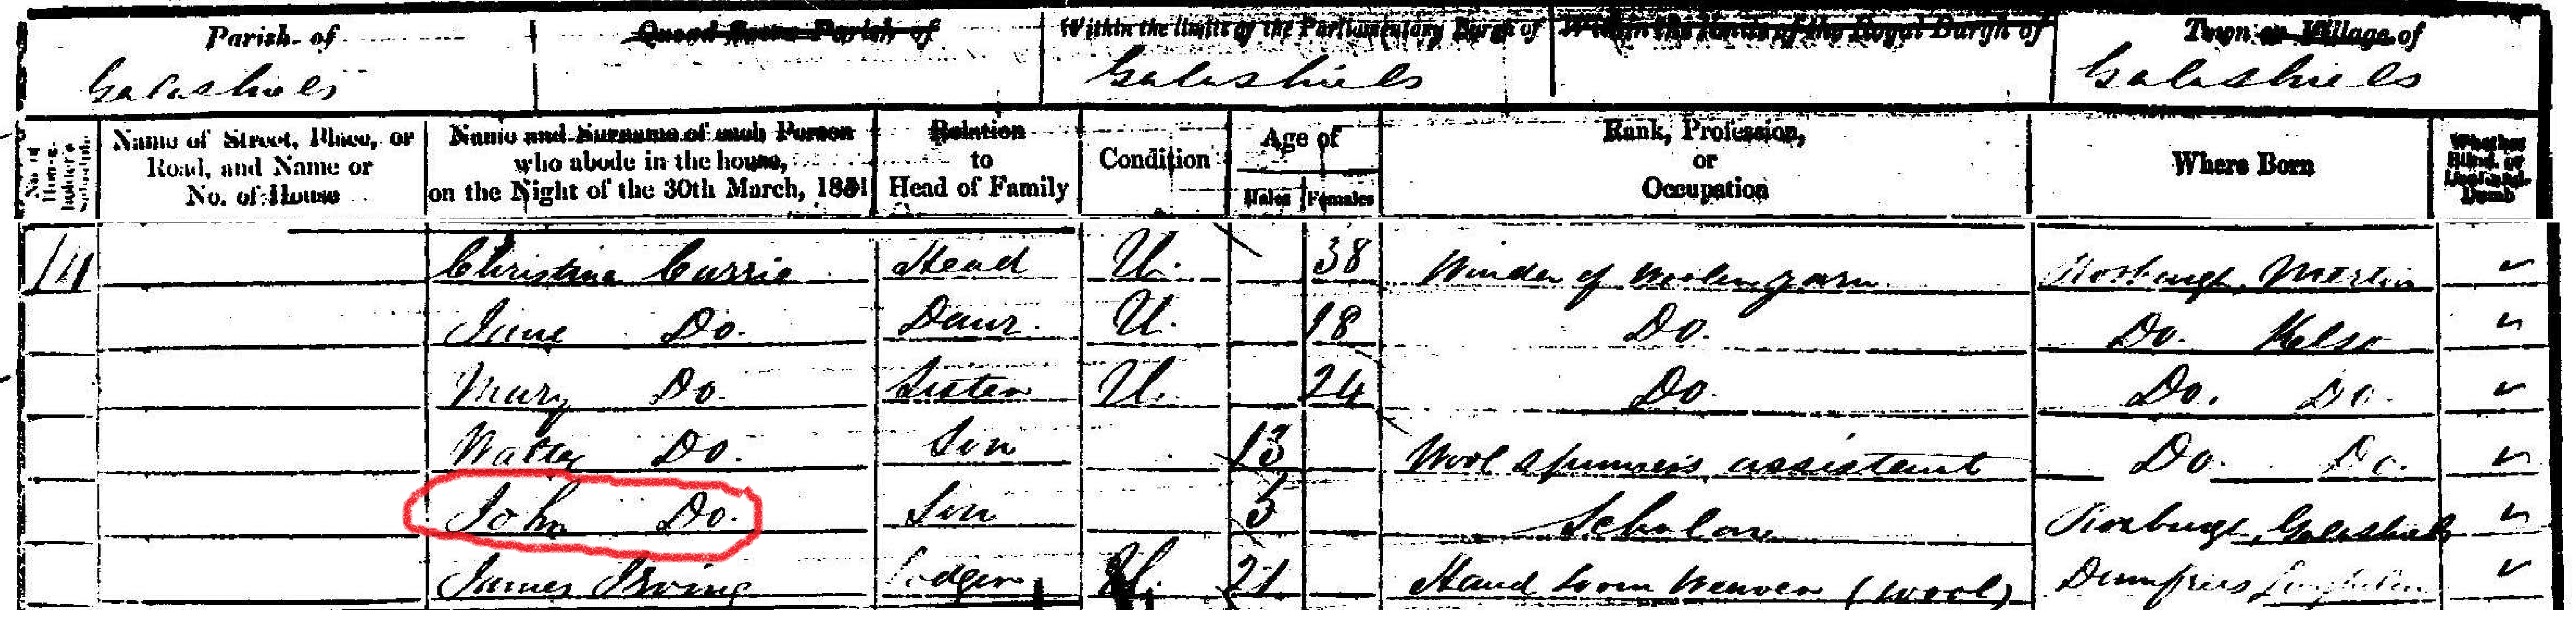 Parish of
Quoad Sacra Parish of
Within the limits of the Parliamentary Burgh of
Within the limits of the Royal Burgh of
Town or Village of
Galashiels
Galashiels
Galashiels
No. of House-holder's Schedule
Name of Street, Place, or Road, and Name or No. of House
Name and Surname of each Person who abode in the house, on the Night of the 30th March, 1851
Relation to Head of Family
Condition
Age of
Males Females
Rank, Profession, or Occupation
Where Born
Whether Blind, or Deaf-and-Dumb
141 Christina Currie Head U. 38 Winder of Woolen yarn Roxburgh,
Jane Do. Daur. U. 18 Do. Do. Kelso
Mary Do. Sister U. 24 Do. Do. Do.
Walter Do. Son 13 Wool spinner's assistant Do. Do.
John Do. Son 5 Scholar Roxburgh, Galashiels
James Irving Lodger U. 21 Hand Loom Weaver (Wool) Dumfries